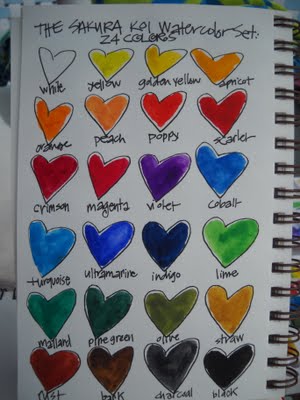 THE SAKURA KOI WATERCOLOR SET:
24 COLORS
white yellow golden yellow apricot
orange peach poppy scarlet
crimson magenta violet cobalt
turquoise ultramarine indigo lime
mallard pine green olive straw
rust bark charcoal black